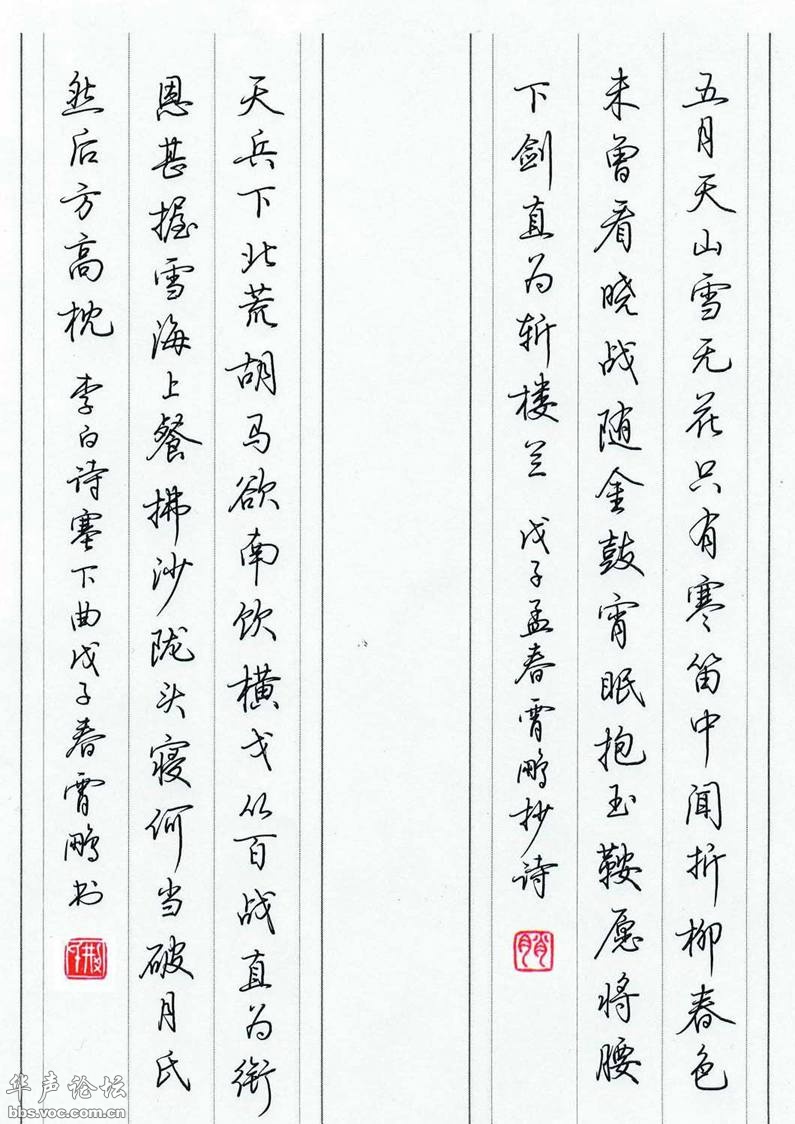 五月天山雪无花只有寒笛中闻折柳春色
未曾看晓战随金鼓宵眠抱玉鞍愿将腰
下剑直为斩楼兰 戊子孟春霄鹏抄诗
天兵下北荒胡马欲南饮横戈从百战直为衔
恩甚握雪海上餐拂沙陇头寝何当破月氏
然后方高枕 李白诗塞下曲戊子春霄鹏书
华声论坛
bbs.voc.com.cn